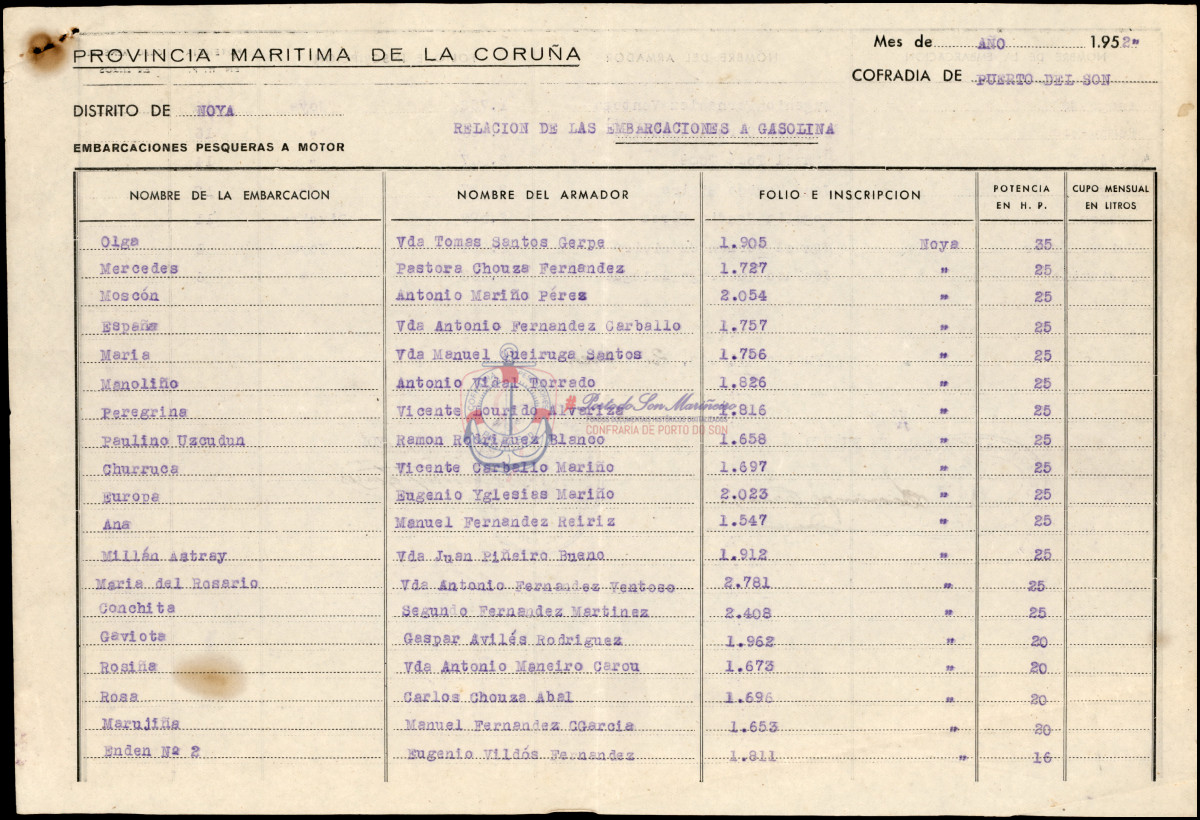 PROVINCIA MARITIMA DE LA CORUÑA
Mes de AÑO 1.952"
COFRADIA DE PUERTO DEL SON
DISTRITO DE NOYA
RELACION DE LAS EMBARCACIONES A GASOLINA
EMBARCACIONES PESQUERAS A MOTOR
NOMBRE DE LA EMBARCACION NOMBRE DEL ARMADOR FOLIO E INSCRIPCION POTENCIA EN H. P. CUPO MENSUAL EN LITROS
Olga Vda Tomas Santos Gerpe 1.905 Noya 35
Mercedes Pastora Chouza Fernandez 1.727 " 25
Moscón Antonio Mariño Pérez 2.054 " 25
España Vda Antonio Fernandez Carballo 1.757 " 25
Maria Vda Manuel Queiruga Santos 1.756 " 25
Manoliño Antonio Vidal Torrado 1.826 " 25
Peregrina Vicente Lourido Alvariza 1.816 " 25
Paulino Uzcudun Ramon Rodriguez Blanco 1.658 " 25
Churruca Vicente Carballo Mariño 1.697 " 25
Europa Eugenio Yglesias Mariño 2.023 " 25
Ana Manuel Fernandez Reiriz 1.547 " 25
Millán Astray Vda Juan Piñeiro Bueno 1.912 " 25
Maria del Rosario Vda Antonio Fernandez Ventoso 2.781 " 25
Conchita Segundo Fernandez Martinez 2.408 " 25
Gaviota Gaspar Avilés Rodriguez 1.962 " 20
Rosiña Vda Antonio Maneiro Carou 1.673 " 20
Rosa Carlos Chouza Abal 1.696 " 20
Marujiña Manuel Fernandez CGarcia 1.653 " 20
Enden Nº 2 Eugenio Vildós Fernandez 1.811 " 16
#Porto do Son Mariñeiro
CONFRARIA DE PORTO DO SON